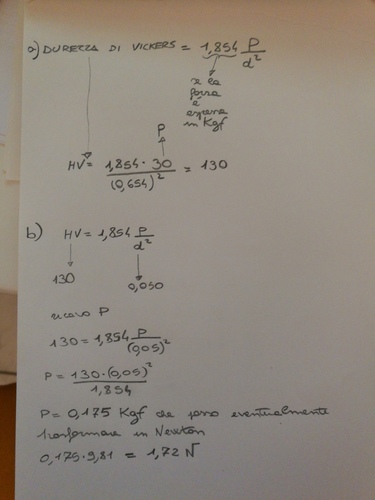 a) DUREZZA DI VICKERS = 1,854 P/d²
se la
forza
è
espressa
in Kgf
P
HV = 1,854 · 30 / (0,654)² = 130
b) HV = 1,854 P/d²
130
0,050
ricavo P
130 = 1,854 P/(0,05)²
P = 130 · (0,05)² / 1,854
P = 0,175 Kgf che posso eventualmente
trasformare in Newton
0,175 · 9,81 = 1,72 N